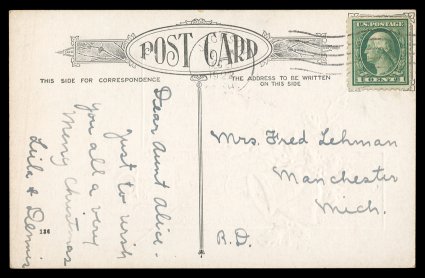 POST CARD
THIS SIDE FOR CORRESPONDENCE
THE ADDRESS TO BE WRITTEN
ON THIS SIDE
U.S. POSTAGE
1 CENT 1
Dear Aunt Alice -
Just to wish
you all a very
Merry Christmas
Leila & Dennis
Mrs. Fred Lehman
Manchester
Mich.
R.D.
136